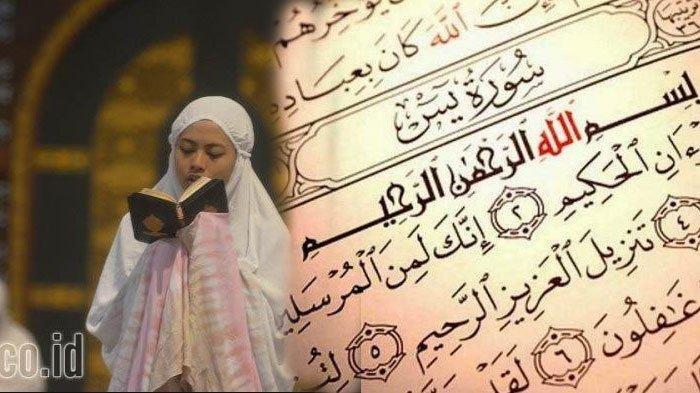 يُؤَخِّرُهُمْ
إِنَّ ٱللَّهَ كَانَ بِعِبَادِهِ
سُورَةُ يسٓ
بِسْمِ ٱللَّهِ ٱلرَّحْمَٰنِ ٱلرَّحِيمِ
ءَانِ ٱلْحَكِيمِ ٢ إِنَّكَ لَمِنَ ٱلْمُرْسَلِينَ
٤ تَنزِيلَ ٱلْعَزِيزِ ٱلرَّحِيمِ ٥
غَٰفِلُونَ ٦ لَقَدْ
co.id